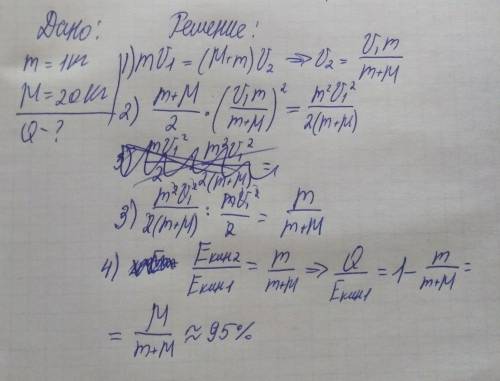 Дано: Решение:
m = 1кг
M = 20кг
Q - ?
1) mV₁ = (M+m)V₂ ⇒ V₂ = V₁m / (m+M)
2) (m+M)/2 · (V₁m/(m+M))² = m²V₁²/(2(m+M))
3) m²V₁²/(2(m+M)) : mV₁²/2 = m/(m+M)
4) Eкин2/Eкин1 = m/(m+M) ⇒ Q/Eкин1 = 1 - m/(m+M) =
= M/(m+M) ≈ 95%